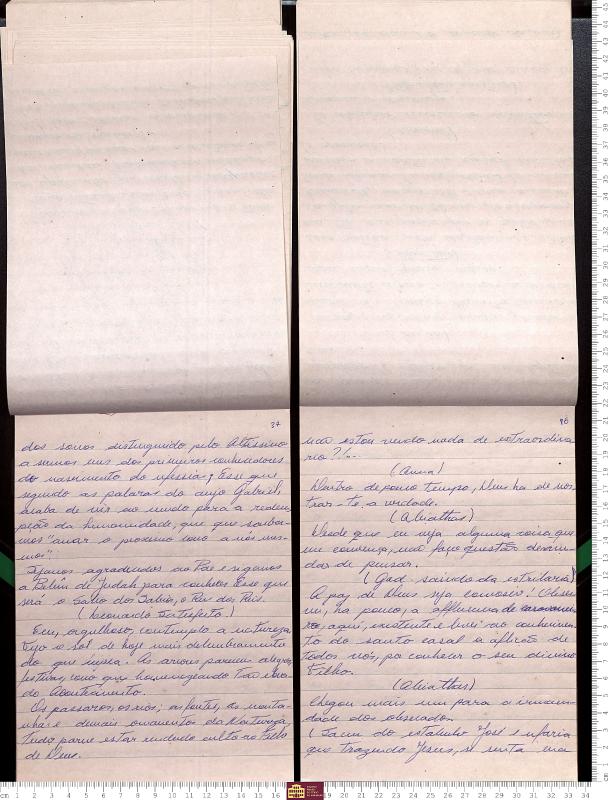 37
dos somos distinguido pelo Altissimo
a sermos uns dos primeiros conhecedores
do nascimento do Messias; Esse que
segundo as palavras do anjo Gabriel,
acaba de vir ao mundo para a redem-
pção da humanidade, que que saiba-
mos "amar o proximo como a nós mes-
mos".
Sejamos agradecidos ao Pae e sigamos
a Belém de Judah para conhecer Esse que
será o Sabio dos Sabios, o Rei dos Reis.
(Leonardo
Eu, orgulhoso, contemplo a natureza.
Vejo o sol de hoje mais deslumbrante
do que nunca. As arvores parecem alegres,
festivas, como que homenageando tão
do Acontecimento.
Os passaros, os rios, as fontes, as monta-
nhas e demais ornamentos da Natureza,
tudo parece estar rendendo culto ao Filho
de Deus.
nca estou vendo nada de extraordina
rio?!...
(Anna)
Dentro de pouco tempo, Deus ha de mos-
trar-te, a verdade.
(Abiathas)
Desde que eu veja alguma coisa que
me convença, não faço questão de mu-
dar de pensar.
(Gad sahindo da estribaria)
A paz de Deus seja comvosco! Obser-
vei, ha pouco, a affluencia de caravanei-
ros, aqui, existente e levei ao conhecimen-
to do santo casal a aflição de
todos vós, por conhecer o seu divino
Filho.
(Abiathas)
Chegou mais um para a irman-
dade dos obsecados.
(Sacm do estabulo José e Maria
que trazendo Jesus, se senta na